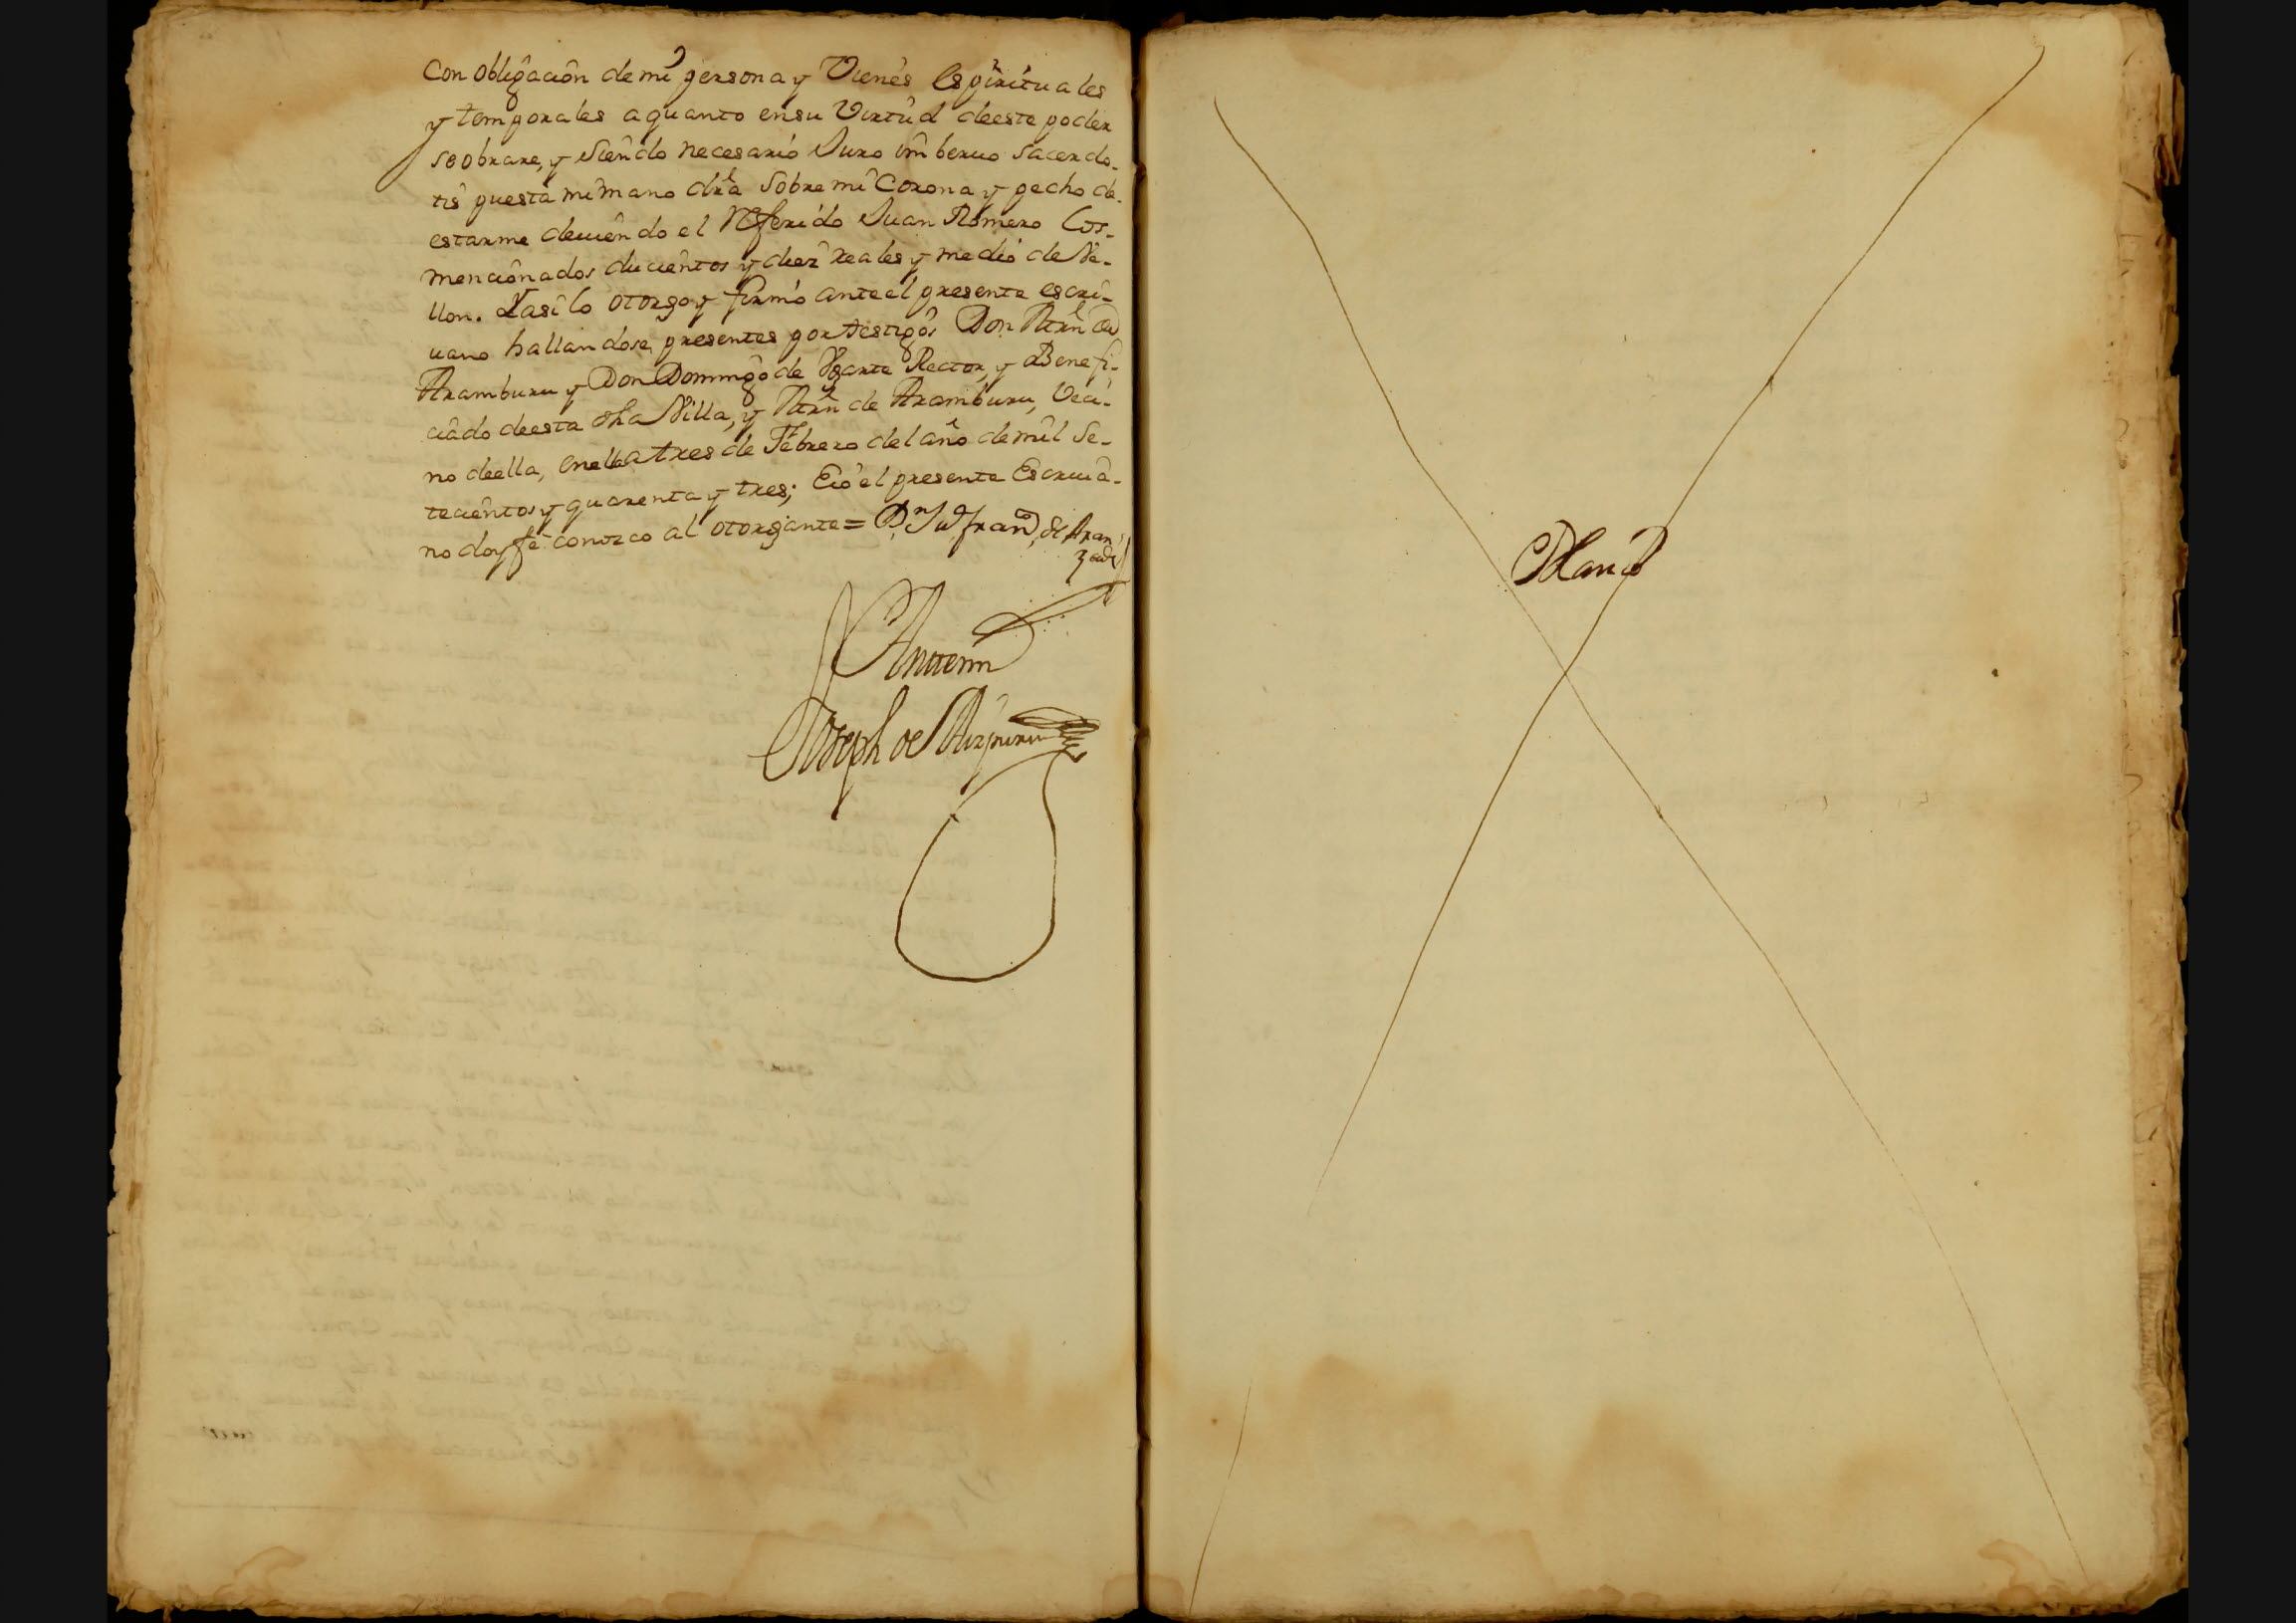 Con obligación de mi persona y Vienes Espirituales
y temporales aquanto ensu Virtud deeste poder
seobrare, y siendo necesario Juro im beruo sacerdo-
tis puesta mi mano dra sobre mi Corona y pecho de
estarme deuiendo el Referido Juan Romero Los-
mencionados ducientos y diez reales y medio de Ve-
llon. Yasilo otorgo y firmo anteel presente escri-
uano hallandose presentes por testigos Don Mrn de
Aramburu y Don Domingo de Ugarte Rector, y Benefi-
ciado deesta dha Villa, y Mrn de Aramburu, Veci-
no deella, enella a tres de Febrero del año de mil Se-
tecientos y quarenta y tres; Eio el presente Escriua-
no doy fe conozco al otorgante = Dn Ju franco de Aran
zadi
Antemi
Joseph de Aizpuru
Blanco